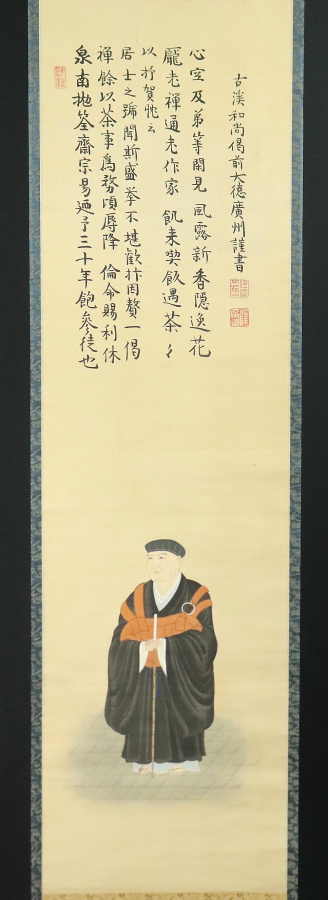 泉南抛筌齋宗易廼予三十年飽參徒也
禪餘以茶事爲務頃辱降 倫命賜利休
居士之號聞斯盛挙不堪歓抃因贅一偈
以抒賀忱云
龐老禪通老作家 飢来喫飯遇茶〻
心空及第等閑見 風露新香隠逸花
古溪和尚偈前大德廣州謹書